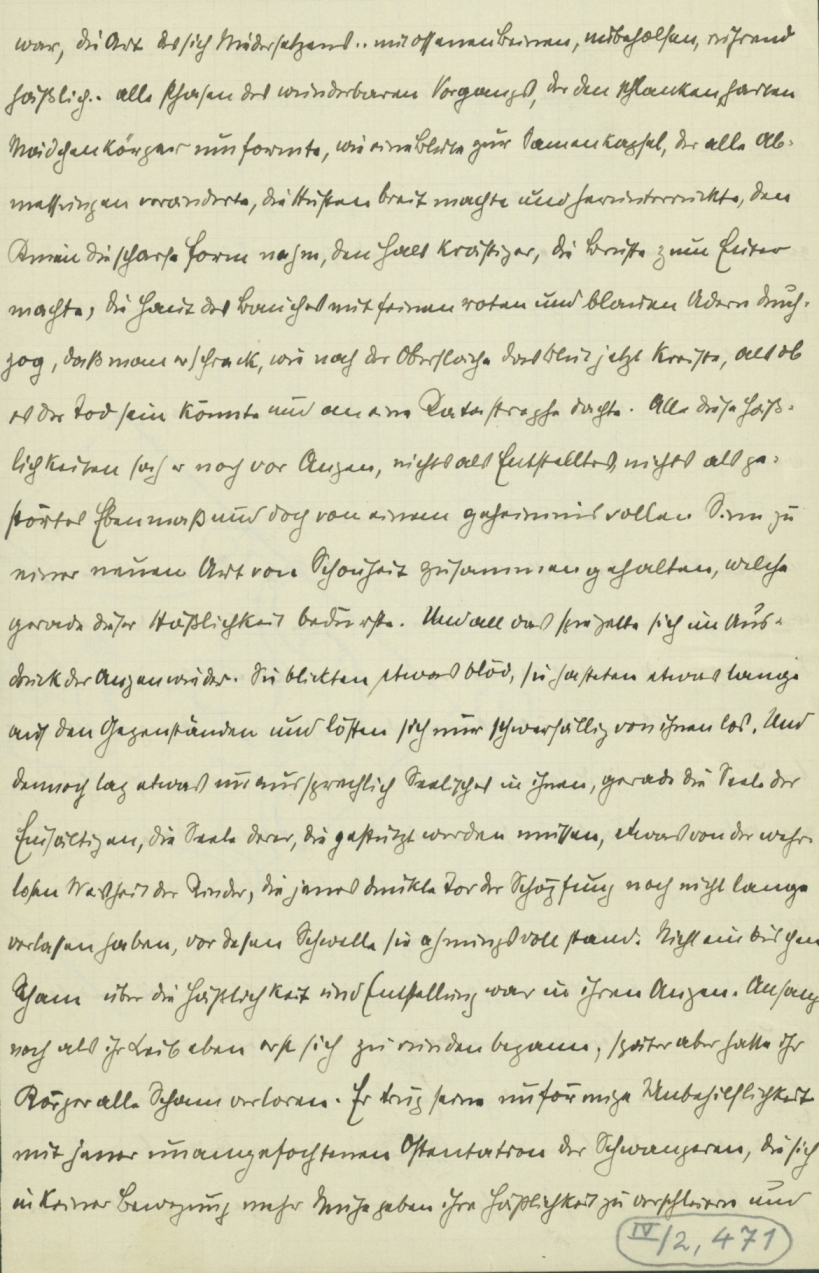 war, die Art des sich Niedersetzens.. mit offenen Beinen, unbeholfen, rührend
häßlich.. alle Phasen des wunderbaren Vorgangs, der den schlanken, harten
Mädchenkörper umformte, wie eine Blüte zur Samenkapsel, der alle Ab-
messungen veränderte, die Hüften breit machte und herunterrückte, den
Knien die scharfe Form nahm, den Hals kräftiger, die Brüste zum Euter
machte, die Haut des Bauches mit feinen roten und blauen Adern durch-
zog, daß man erschrak, wie nah der Oberfläche das Blut jetzt kreiste, als ob
es der Tod sein könnte und an eine Katastrophe dachte. Alle diese Häß-
lichkeiten sah er noch vor Augen, nichts als Entstelltes, nichts als ge-
störtes Ebenmaß und doch von einem geheimnisvollen Sinn zu
einer neuen Art von Schönheit zusammengehalten, welche
gerade dieser Häßlichkeit bedurfte. Und all das spiegelte sich im Aus-
druck der Augen wieder. Sie blickten etwas blöd, sie hafteten etwas lange
auf den Gegenständen und lösten sich nur schwerfällig von ihnen los. Und
dennoch lag etwas unaussprechlich Seelisches in ihnen, gerade die Seele der
Einfältigen, die Seele derer, die gestützt werden müssen, etwas von der wehr-
losen Weisheit der Kinder, die jenes dunkle Tor der Schöpfung noch nicht lange
verlassen haben, vor dessen Schwelle sie ahnungsvoll stand. Nicht ein bischen
Scham über die Häßlichkeit und Entstellung war in ihren Augen. Anfang
noch als ihr Leib eben erst sich zu runden begann, später aber hatte ihr
Körper alle Scham verloren. Er trug seine unförmige Unbehilflichkeit
mit jener unangefochtenen Ostentation der Schwangeren, die sich
in keiner Bewegung mehr Mühe geben ihre Häßlichkeit zu verschleiern und
IV/2, 471